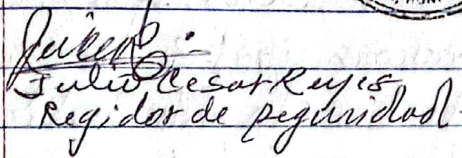 Julio Cesar Reyes
Regidor de seguridad